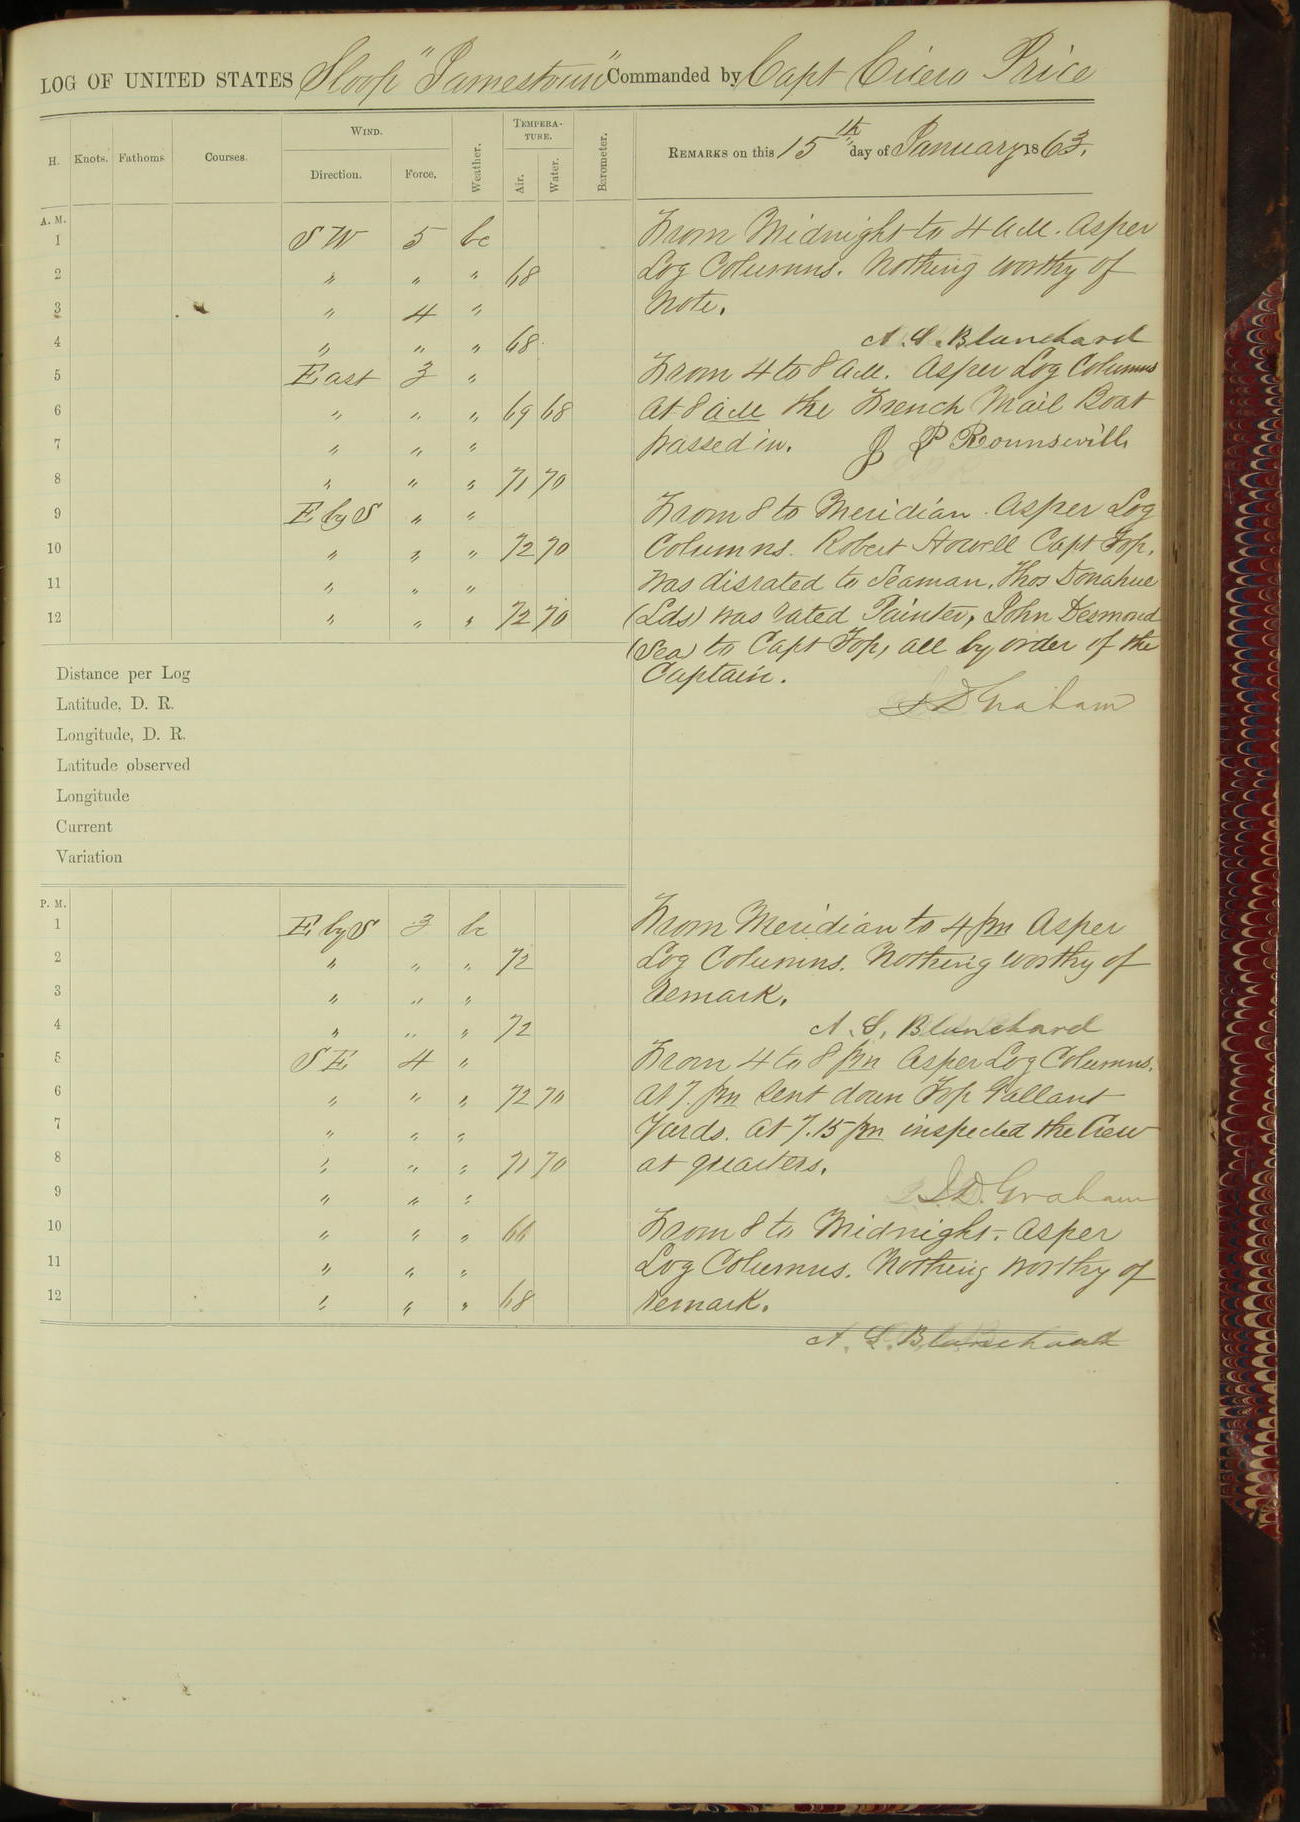 LOG OF UNITED STATES Sloop "Jamestown" Commanded by Capt Cicero Price
H. Knots. Fathoms. Courses. WIND. Direction. Force. Weather. TEMPERATURE. Air. Water. Barometer. REMARKS on this 15th day of January 1863.
A. M.
1 SW 5 bc From Midnight to 4 AM. Asper
2 " " " 68 Log Columns. Nothing worthy of
3 " 4 " Note.
4 " " " 68 A. S. Blanchard
5 East 3 " From 4 to 8 AM. Asper Log Columns
6 " " " 69 68 At 8 AM the French Mail Boat
7 " " " passed in. J P Rounsvill
8 " " " 71 70
9 E by S " " From 8 to Meridian. Asper Log
10 " " " 72 70 Columns. Robert Howell Capt Top,
11 " " " was disrated to Seaman, Thos Donahue
12 " " " 72 70 (Lds) was rated Painter, John Desmond
(Sea) to Capt Top, all by order of the
Captain.
Distance per Log
Latitude, D. R. Graham
Longitude, D. R.
Latitude observed
Longitude
Current
Variation
P. M.
1 E by S 3 bc From Meridian to 4 pm Asper
2 " " " 72 Log Columns. Nothing worthy of
3 " " " remark.
4 " " " 72 A. S. Blanchard
5 SE 4 " From 4 to 8 pm Asper Log Columns.
6 " " " 72 70 At 7. pm sent down Top Gallant
7 " " " Yards. at 7.15 pm inspected the Crew
8 " " " 71 70 at quarters.
9 " " " D. Graham
10 " " " 66 From 8 to Midnight. Asper
11 " " " Log Columns. Nothing worthy of
12 " " " 68 remark.
A. S. Blanchard